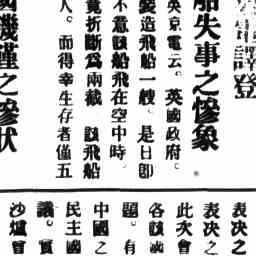 電譯登
船失事之慘象。
英京電云。英國政府。
製造飛船一艘。是日卽
不意該船飛在空中時。
竟折斷爲兩截。該飛船
人。而得幸生存者僅五
饑饉之慘狀
表决之
表决之
此次會
各該
題。有
中國之
民主國
議。